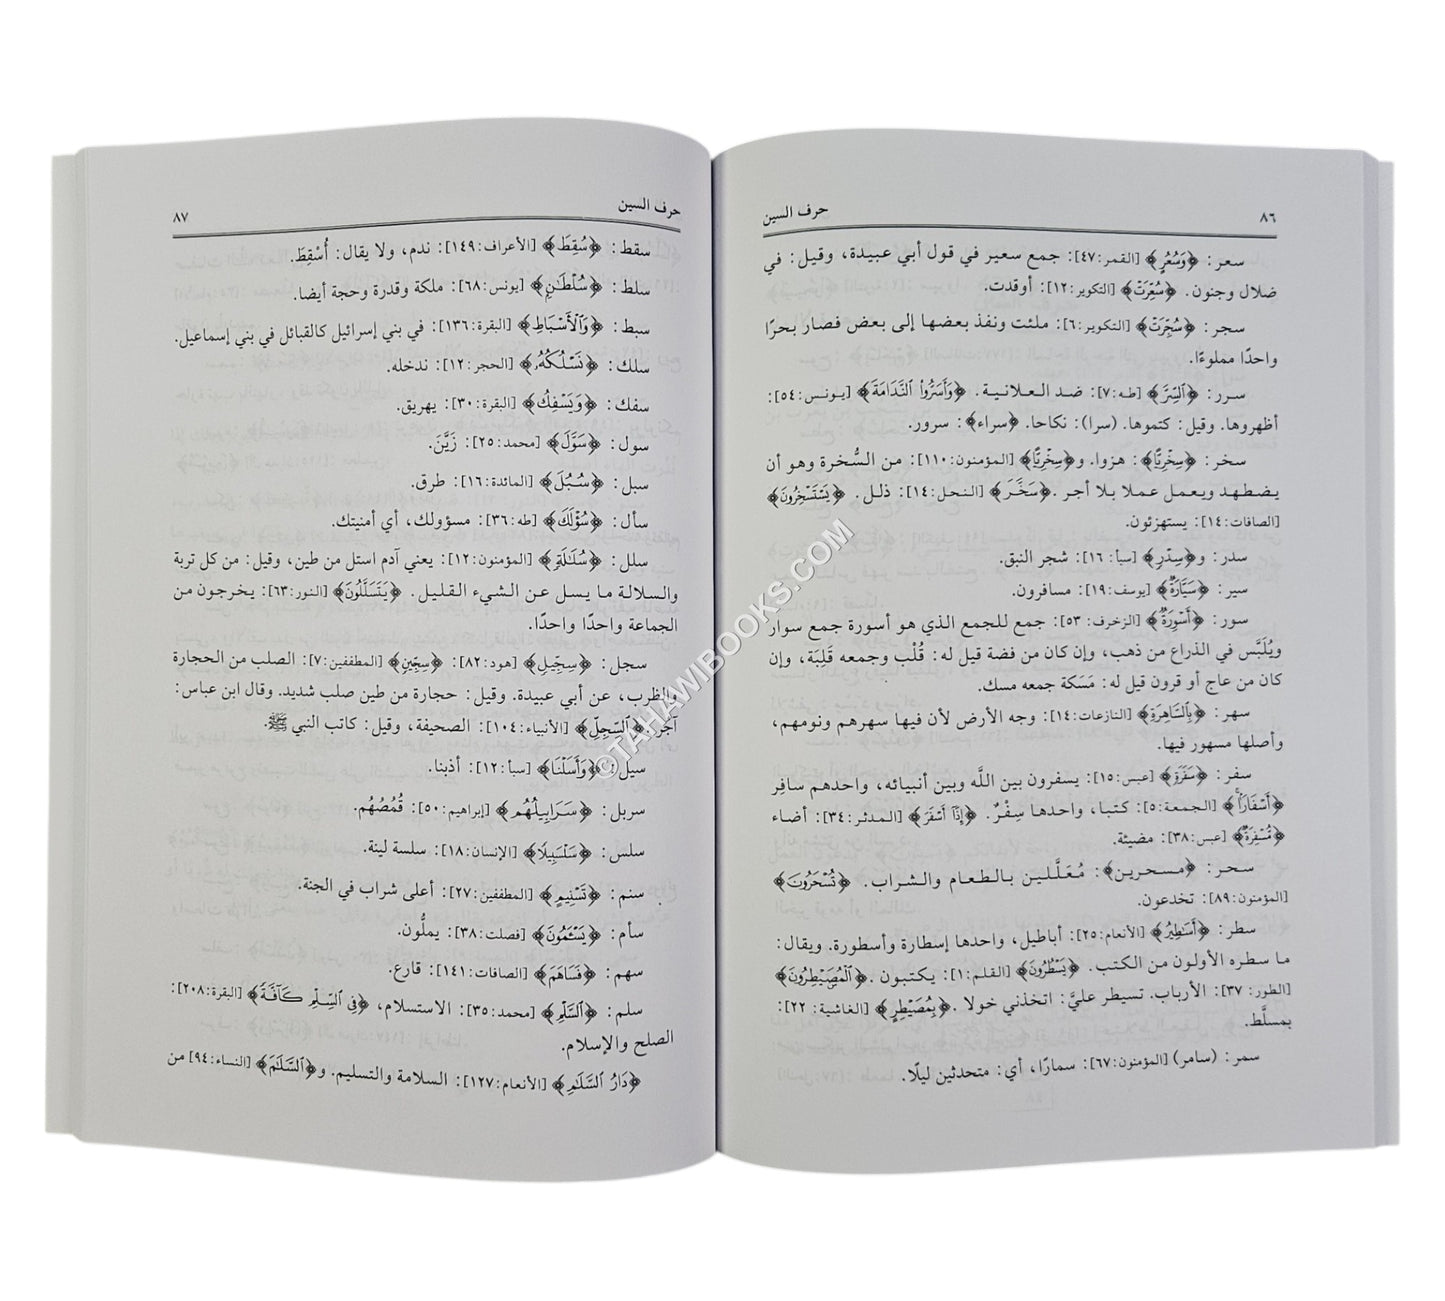 حرف السين ٨٦
سعر: ﴿وَسُعُرٍ﴾ [القمر:٤٧]: جمع سعير في قول أبي عبيدة، وقيل: في
ضلال وجنون. ﴿سُعِّرَتْ﴾ [التكوير:١٢]: أوقدت.
سجر: ﴿سُجِّرَتْ﴾ [التكوير:٦]: ملئت ونفذ بعضها إلى بعض فصار بحرًا
واحدًا مملوءًا.
سرر: ﴿ٱلسِّرَّ﴾ [طه:٧]: ضد العلانية. ﴿وَأَسَرُّوا۟ ٱلنَّدَامَةَ﴾ [يونس:٥٤]:
أظهروها. وقيل: كتموها. (سرا): نكاحا. ﴿سراء﴾: سرور.
سخر: ﴿سِخْرِيًّا﴾: هزوا. و﴿سِخْرِيًّا﴾ [المؤمنون:١١٠]: من السُّخرة وهو أن
يضطهد ويعمل عملا بلا أجر. ﴿سَخَّرَ﴾ [النحل:١٤]: ذلل. ﴿يَسْتَسْخِرُونَ﴾
[الصافات:١٤]: يستهزئون.
سدر: و﴿سِدْرٍ﴾ [سبأ: ١٦]: شجر النبق.
سير: ﴿سَيَّارَةٌ﴾ [يوسف:١٩]: مسافرون.
سور: ﴿أَسْوِرَةٌ﴾ [الزخرف: ٥٣]: جمع للجمع الذي هو أسورة جمع سوار
ويُلَبَّس في الذراع من ذهب، وإن كان من فضة قيل له: قُلْب وجمعه قَلِبَة، وإن
كان من عاج أو قرون قيل له: مَسَكة جمعه مسك.
سهر: ﴿بِٱلسَّاهِرَةِ﴾ [النازعات:١٤]: وجه الأرض لأن فيها سهرهم ونومهم،
وأصلها مسهور فيها.
سفر: ﴿سَفَرَةٍ﴾ [عبس:١٥]: يسفرون بين اللَّه وبين أنبيائه، واحدهم سافِر
﴿أَسْفَارًا﴾ [الجمعة:٥]: كتبا، واحدها سِفْرٌ. ﴿إِذَآ أَسْفَرَ﴾ [المدثر:٣٤]: أضاء
﴿مُّسْفِرَةٌ﴾ [عبس:٣٨]: مضيئة.
سحر: ﴿مسحرين﴾: مُعَلَّلين بالطعام والشراب. ﴿تُسْحَرُونَ﴾
[المؤمنون:٨٩]: تخدعون.
سطر: ﴿أَسَٰطِيرُ﴾ [الأنعام:٢٥]: أباطيل، واحدها إسطارة وأسطورة. ويقال:
ما سطره الأولون من الكتب. ﴿يَسْطُرُونَ﴾ [القلم:١]: يكتبون. ﴿ٱلْمُصَۣيْطِرُونَ﴾
[الطور:٣٧]: الأرباب. تسيطر عليَّ: اتخذني خولا. ﴿بِمُصَيْطِرٍ﴾ [الغاشية: ٢٢]:
بمسلَّط.
سمر: (سامر) [المؤمنون:٦٧]: سمارًا، أي: متحدثين ليلًا.
حرف السين ٨٧
سقط: ﴿سُقِطَ﴾ [الأعراف:١٤٩]: ندم، ولا يقال: أُسْقِطَ.
سلط: ﴿سُلْطَٰنٍ﴾ [يونس:٦٨]: ملكة وقدرة وحجة أيضا.
سبط: ﴿وَٱلْأَسْبَاطِ﴾ [البقرة:١٣٦]: في بني إسرائيل كالقبائل في بني إسماعيل.
سلك: ﴿نَسْلُكُهُۥ﴾ [الحجر:١٢]: ندخله.
سفك: ﴿وَيَسْفِكُ﴾ [البقرة:٣٠]: يهريق.
سول: ﴿سَوَّلَ﴾ [محمد:٢٥]: زَيَّنَ.
سبل: ﴿سُبُلَ﴾ [المائدة:١٦]: طرق.
سأل: ﴿سُؤْلَكَ﴾ [طه:٣٦]: مسؤولك، أي أمنيتك.
سلل: ﴿سُلَٰلَةٍ﴾ [المؤمنون:١٢]: يعني آدم استل من طين، وقيل: من كل تربة
والسلالة ما يسل عن الشيء القليل. ﴿يَتَسَلَّلُونَ﴾ [النور:٦٣]: يخرجون من
الجماعة واحدًا واحدًا.
سجل: ﴿سِجِّيلٍ﴾ [هود:٨٢]: ﴿سِجِّينٍ﴾ [المطففين:٧]: الصلب من الحجارة
والظرب، عن أبي عبيدة. وقيل: حجارة من طين صلب شديد. وقال ابن عباس:
آجر ﴿ٱلسِّجِلِّ﴾ [الأنبياء:١٠٤]: الصحيفة، وقيل: كاتب النبي ﷺ.
سيل: ﴿وَأَسَلْنَا﴾ [سبأ:١٢]: أذبنا.
سربل: ﴿سَرَابِيلُهُم﴾ [إبراهيم:٥٠]: قُمُصُهُم.
سلس: ﴿سَلْسَبِيلًا﴾ [الإنسان:١٨]: سلسة لينة.
سنم: ﴿تَسْنِيمٍ﴾ [المطففين:٢٧]: أعلى شراب في الجنة.
سأم: ﴿يَسْـَٔمُونَ﴾ [فصلت:٣٨]: يملُّون.
سهم: ﴿فَسَاهَمَ﴾ [الصافات:١٤١]: قارع.
سلم: ﴿ٱلسَّلْمِ﴾ [محمد:٣٥]: الاستسلام، ﴿فِى ٱلسِّلْمِ كَآفَّةً﴾ [البقرة:٢٠٨]:
الصلح والإسلام.
﴿دَارُ ٱلسَّلَٰمِ﴾ [الأنعام:١٢٧]: السلامة والتسليم. و﴿ٱلسَّلَٰمَ﴾ [النساء:٩٤] من
©TAHAWIBOOKS.COM